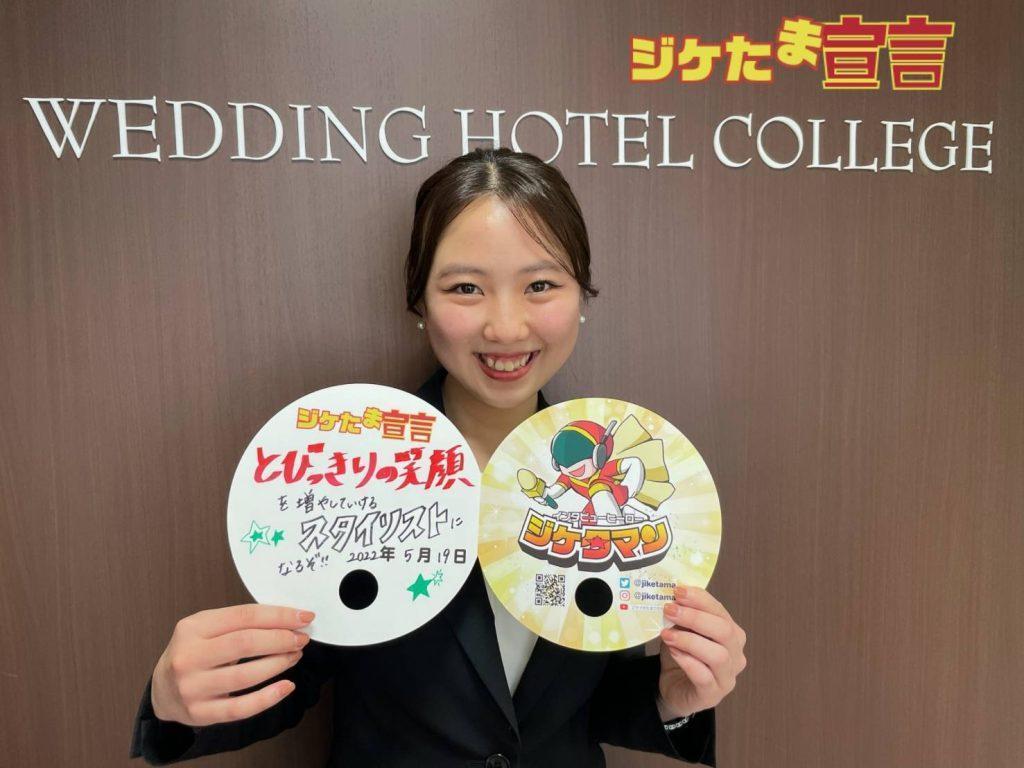 ジケたま宣言
WEDDING HOTEL COLLEGE
ジケたま宣言
とびっきりの笑顔
を増やしていける
スタイリストに
なるぞ!!
2022年5月19日
インタビューヒーロー
ジケタマン
@jiketama
@jiketama